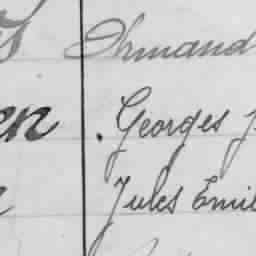 Armand
en . Georges J
Jules Emil